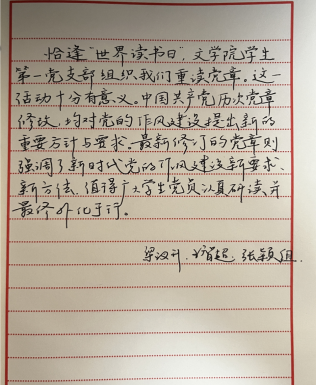 恰逢“世界读书日”，文学院学生
第一党支部组织我们重读党章。这一
活动十分有意义。中国共产党历次党章
修改，均对党的作风建设提出新的
重要方针与要求。最新修订的党章则
强调了新时代党的作风建设新要求、
新方法，值得广大学生党员认真研读并
最终外化于行。
梁汉升、超、张颖组